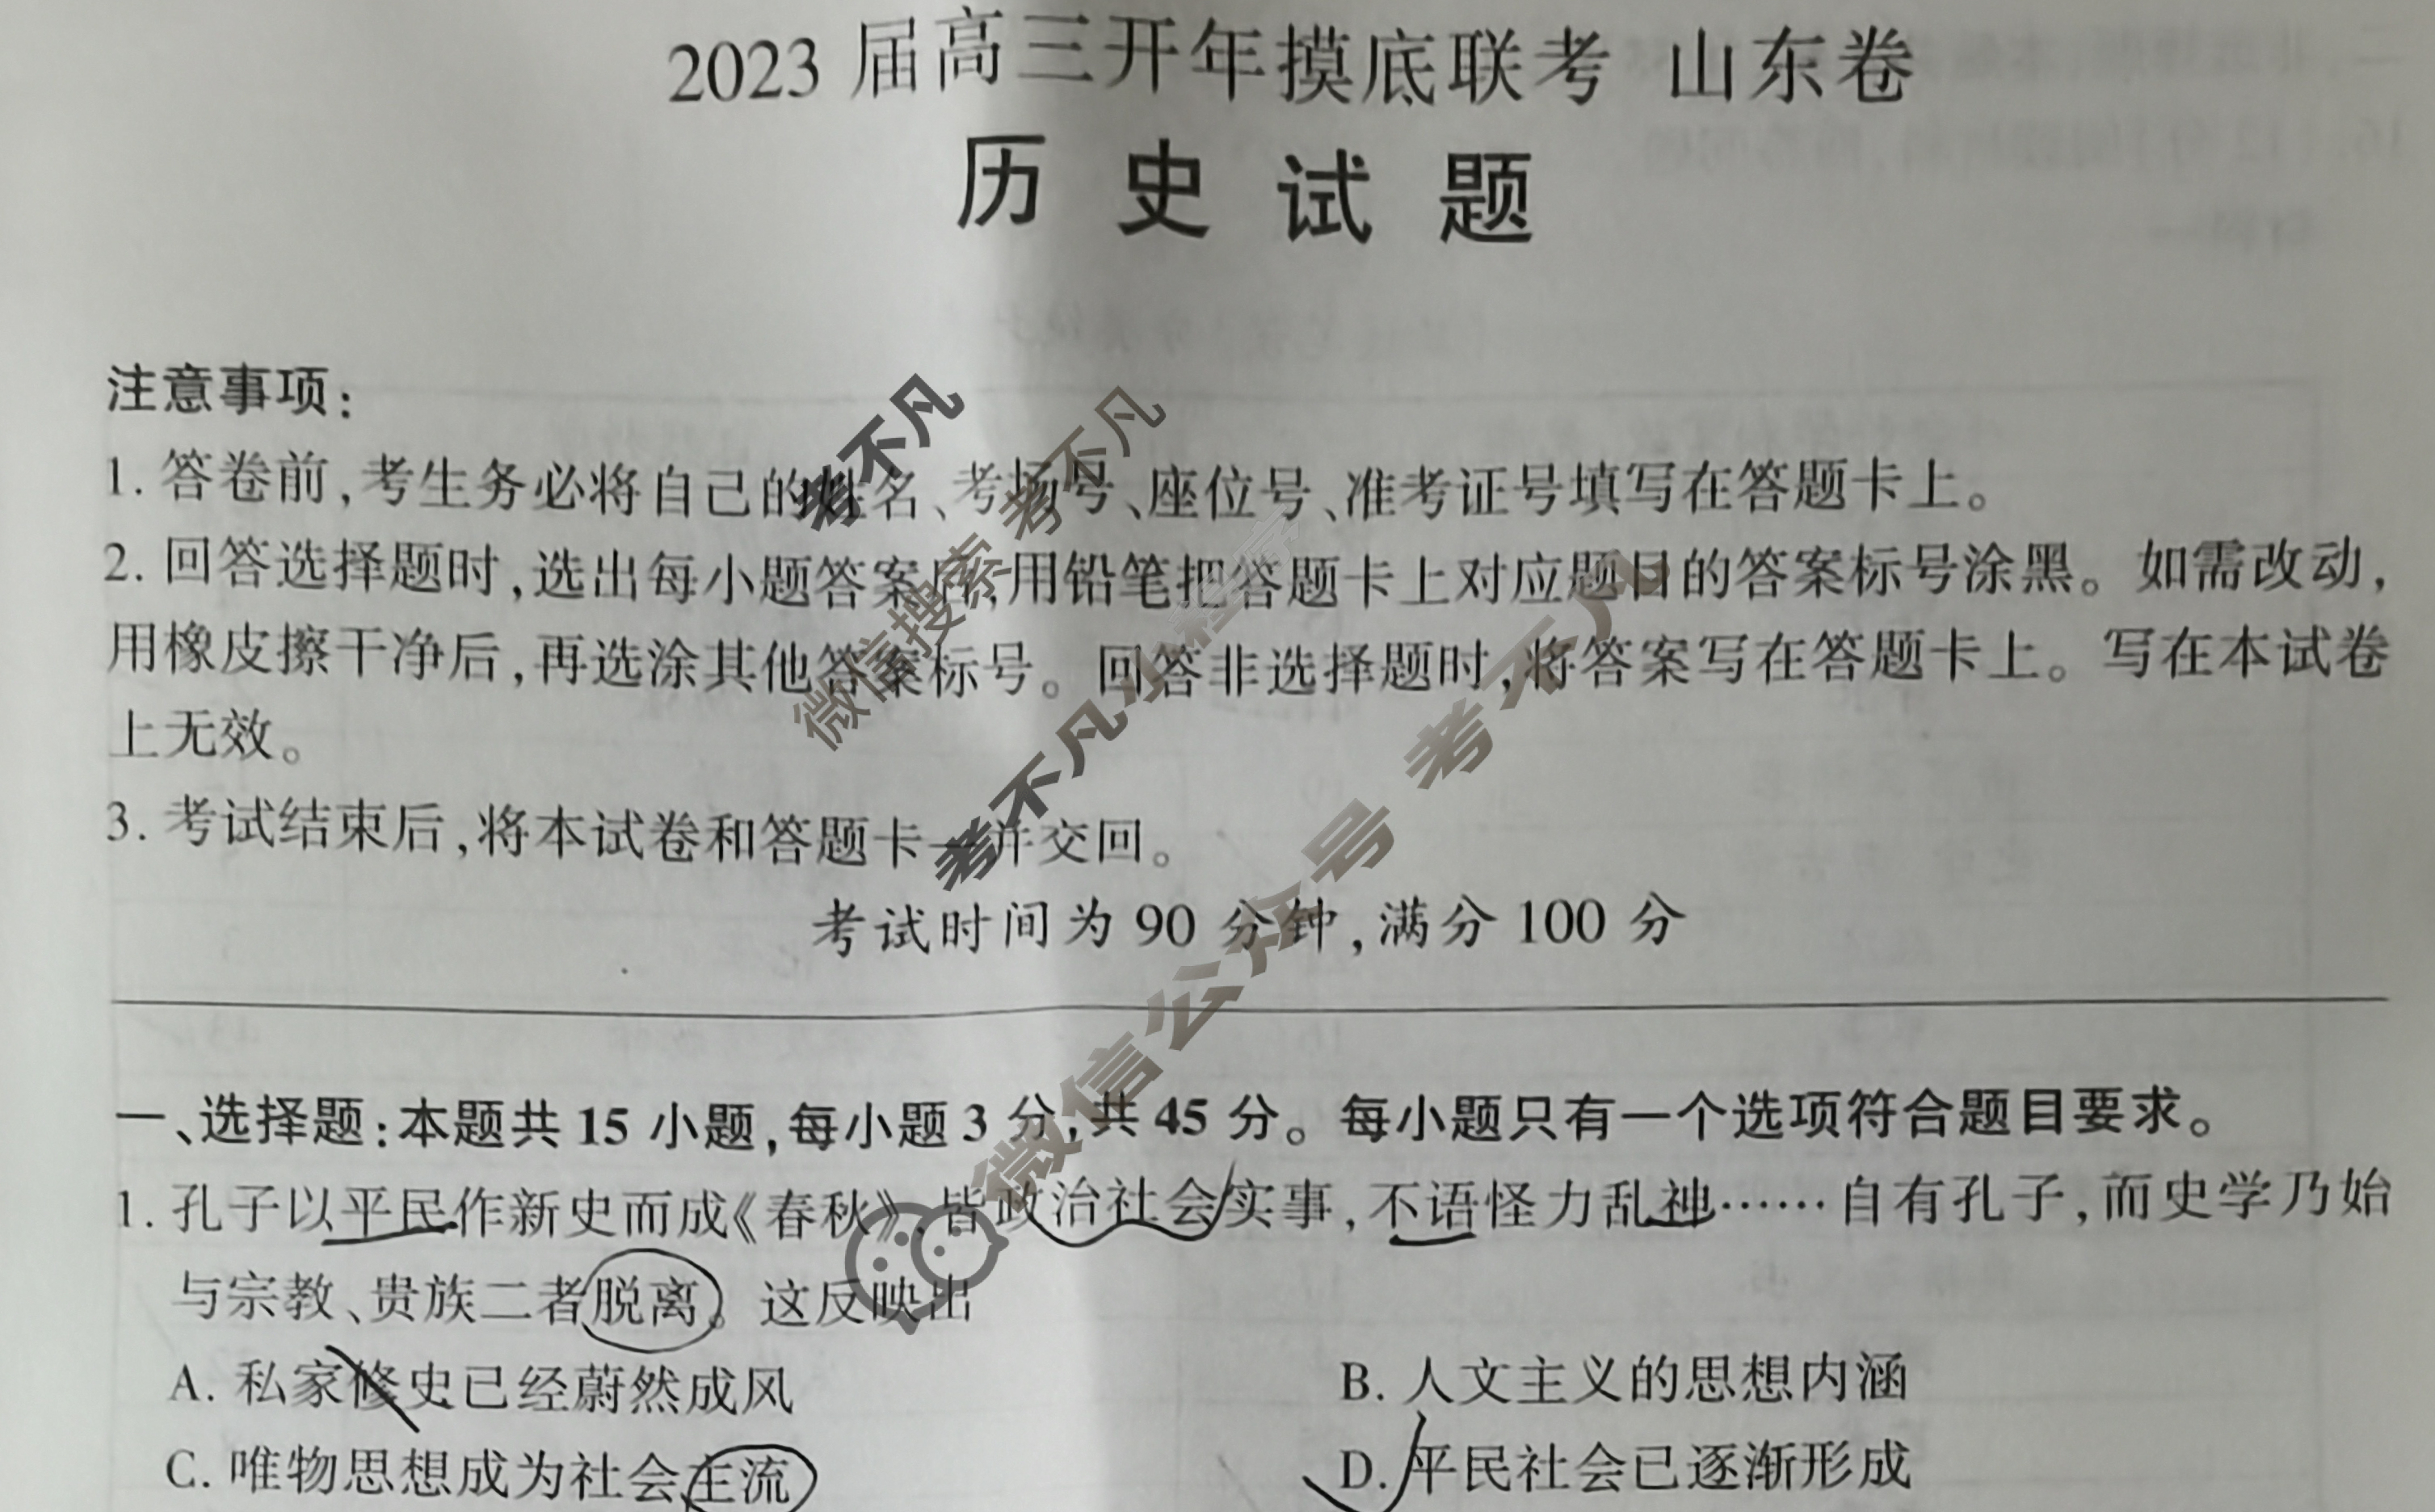 2023 届高三开年摸底联考 山东卷
历史试题
注意事项:
1. 答卷前,考生务必将自己的姓名、考场号、座位号、准考证号填写在答题卡上。
2. 回答选择题时,选出每小题答案后,用铅笔把答题卡上对应题目的答案标号涂黑。如需改动,
用橡皮擦干净后,再选涂其他答案标号。回答非选择题时,将答案写在答题卡上。写在本试卷
上无效。
3. 考试结束后,将本试卷和答题卡一并交回。
考试时间为 90 分钟,满分 100 分
一、选择题:本题共 15 小题,每小题 3 分,共 45 分。每小题只有一个选项符合题目要求。
1. 孔子以平民作新史而成《春秋》,皆政治社会实事,不语怪力乱神……自有孔子,而史学乃始
与宗教、贵族二者脱离。这反映出
A. 私家修史已经蔚然成风
B. 人文主义的思想内涵
C. 唯物思想成为社会主流
D. 平民社会已逐渐形成
考不凡
微信搜索 考不凡
考不凡小程序
微信公众号 考不凡